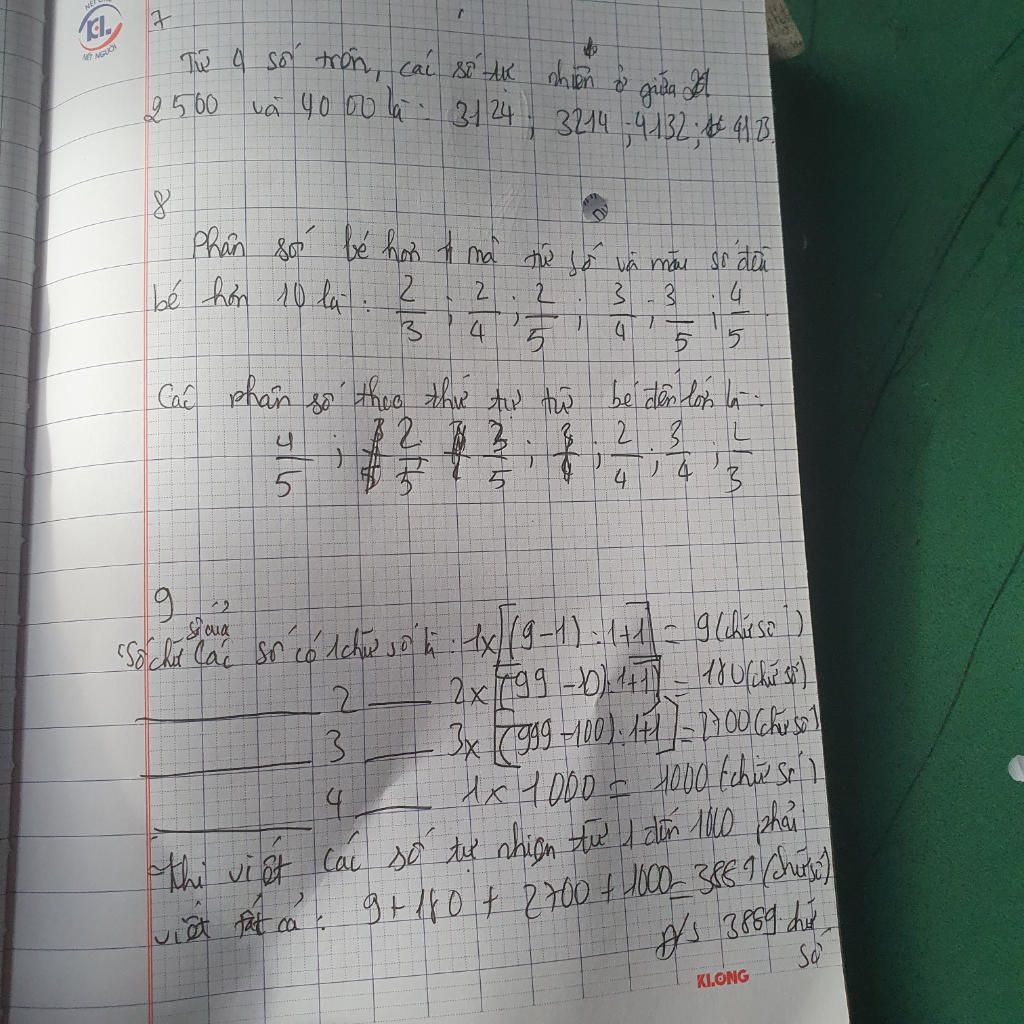 KL.
NÉT NGƯỜI
7
Từ 4 số trên, các số tự nhiên ở giữa
2500 và 4000 là: 3124; 3214; 4132; 4123.
8
Phân số bé hơn 1 mà tử số và mẫu số đều
bé hơn 10 là: 2/3; 2/4; 2/5; 3/4; 3/5; 4/5
Các phân số theo thứ tự từ bé đến lớn là:
4/5; 2/5 3/5; 2/4; 3/4; 2/3
9
Số chữ số của các số có 1 chữ số là: 1x[(9-1):1+1] = 9 (chữ số)
2 2x[(99-10):1+1] = 180 (chữ số)
3 3x[(999-100):1+1] = 2700 (chữ số)
4 1x1000 = 1000 (chữ số)
Thì viết các số tự nhiên từ 1 đến 1000 phải
viết tất cả: 9+180+2700+1000=3889 (chữ số)
Đ/S 3889 chữ
số
KLONG